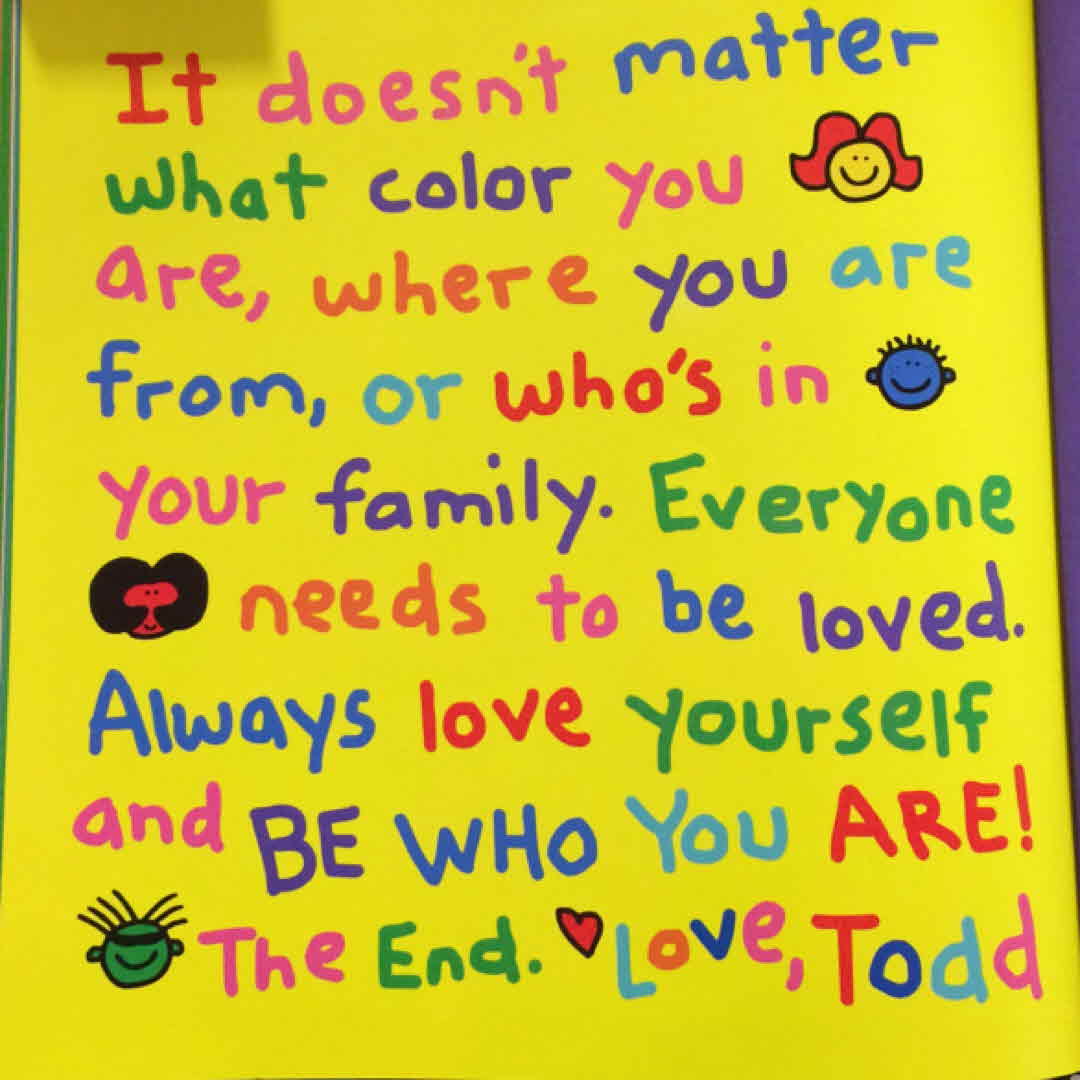 It doesn't matter
what color you
are, where you are
from, or who's in
your family. Everyone
needs to be loved.
Always love yourself
and BE WHO YOU ARE!
The End. Love, Todd